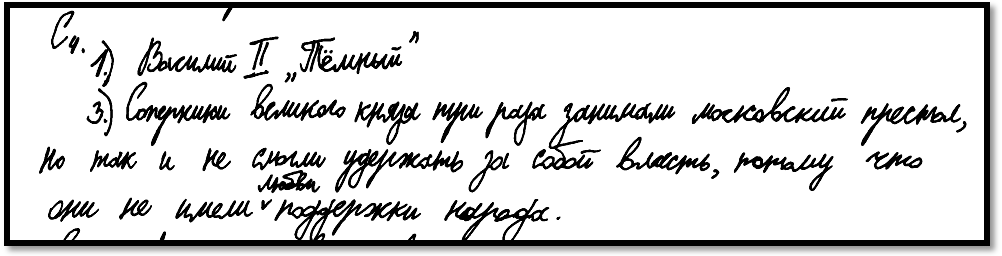 С4.
1.) Василий II „Тёмный"
3.) Соперники великого князя три раза занимали московский престол,
но так и не смогли удержать за собой власть, потому что
любви
они не имели поддержки народа.